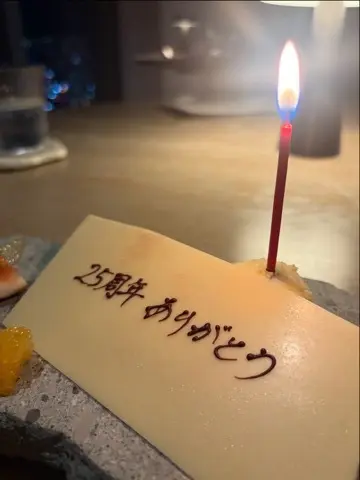 25周年 ありがとう